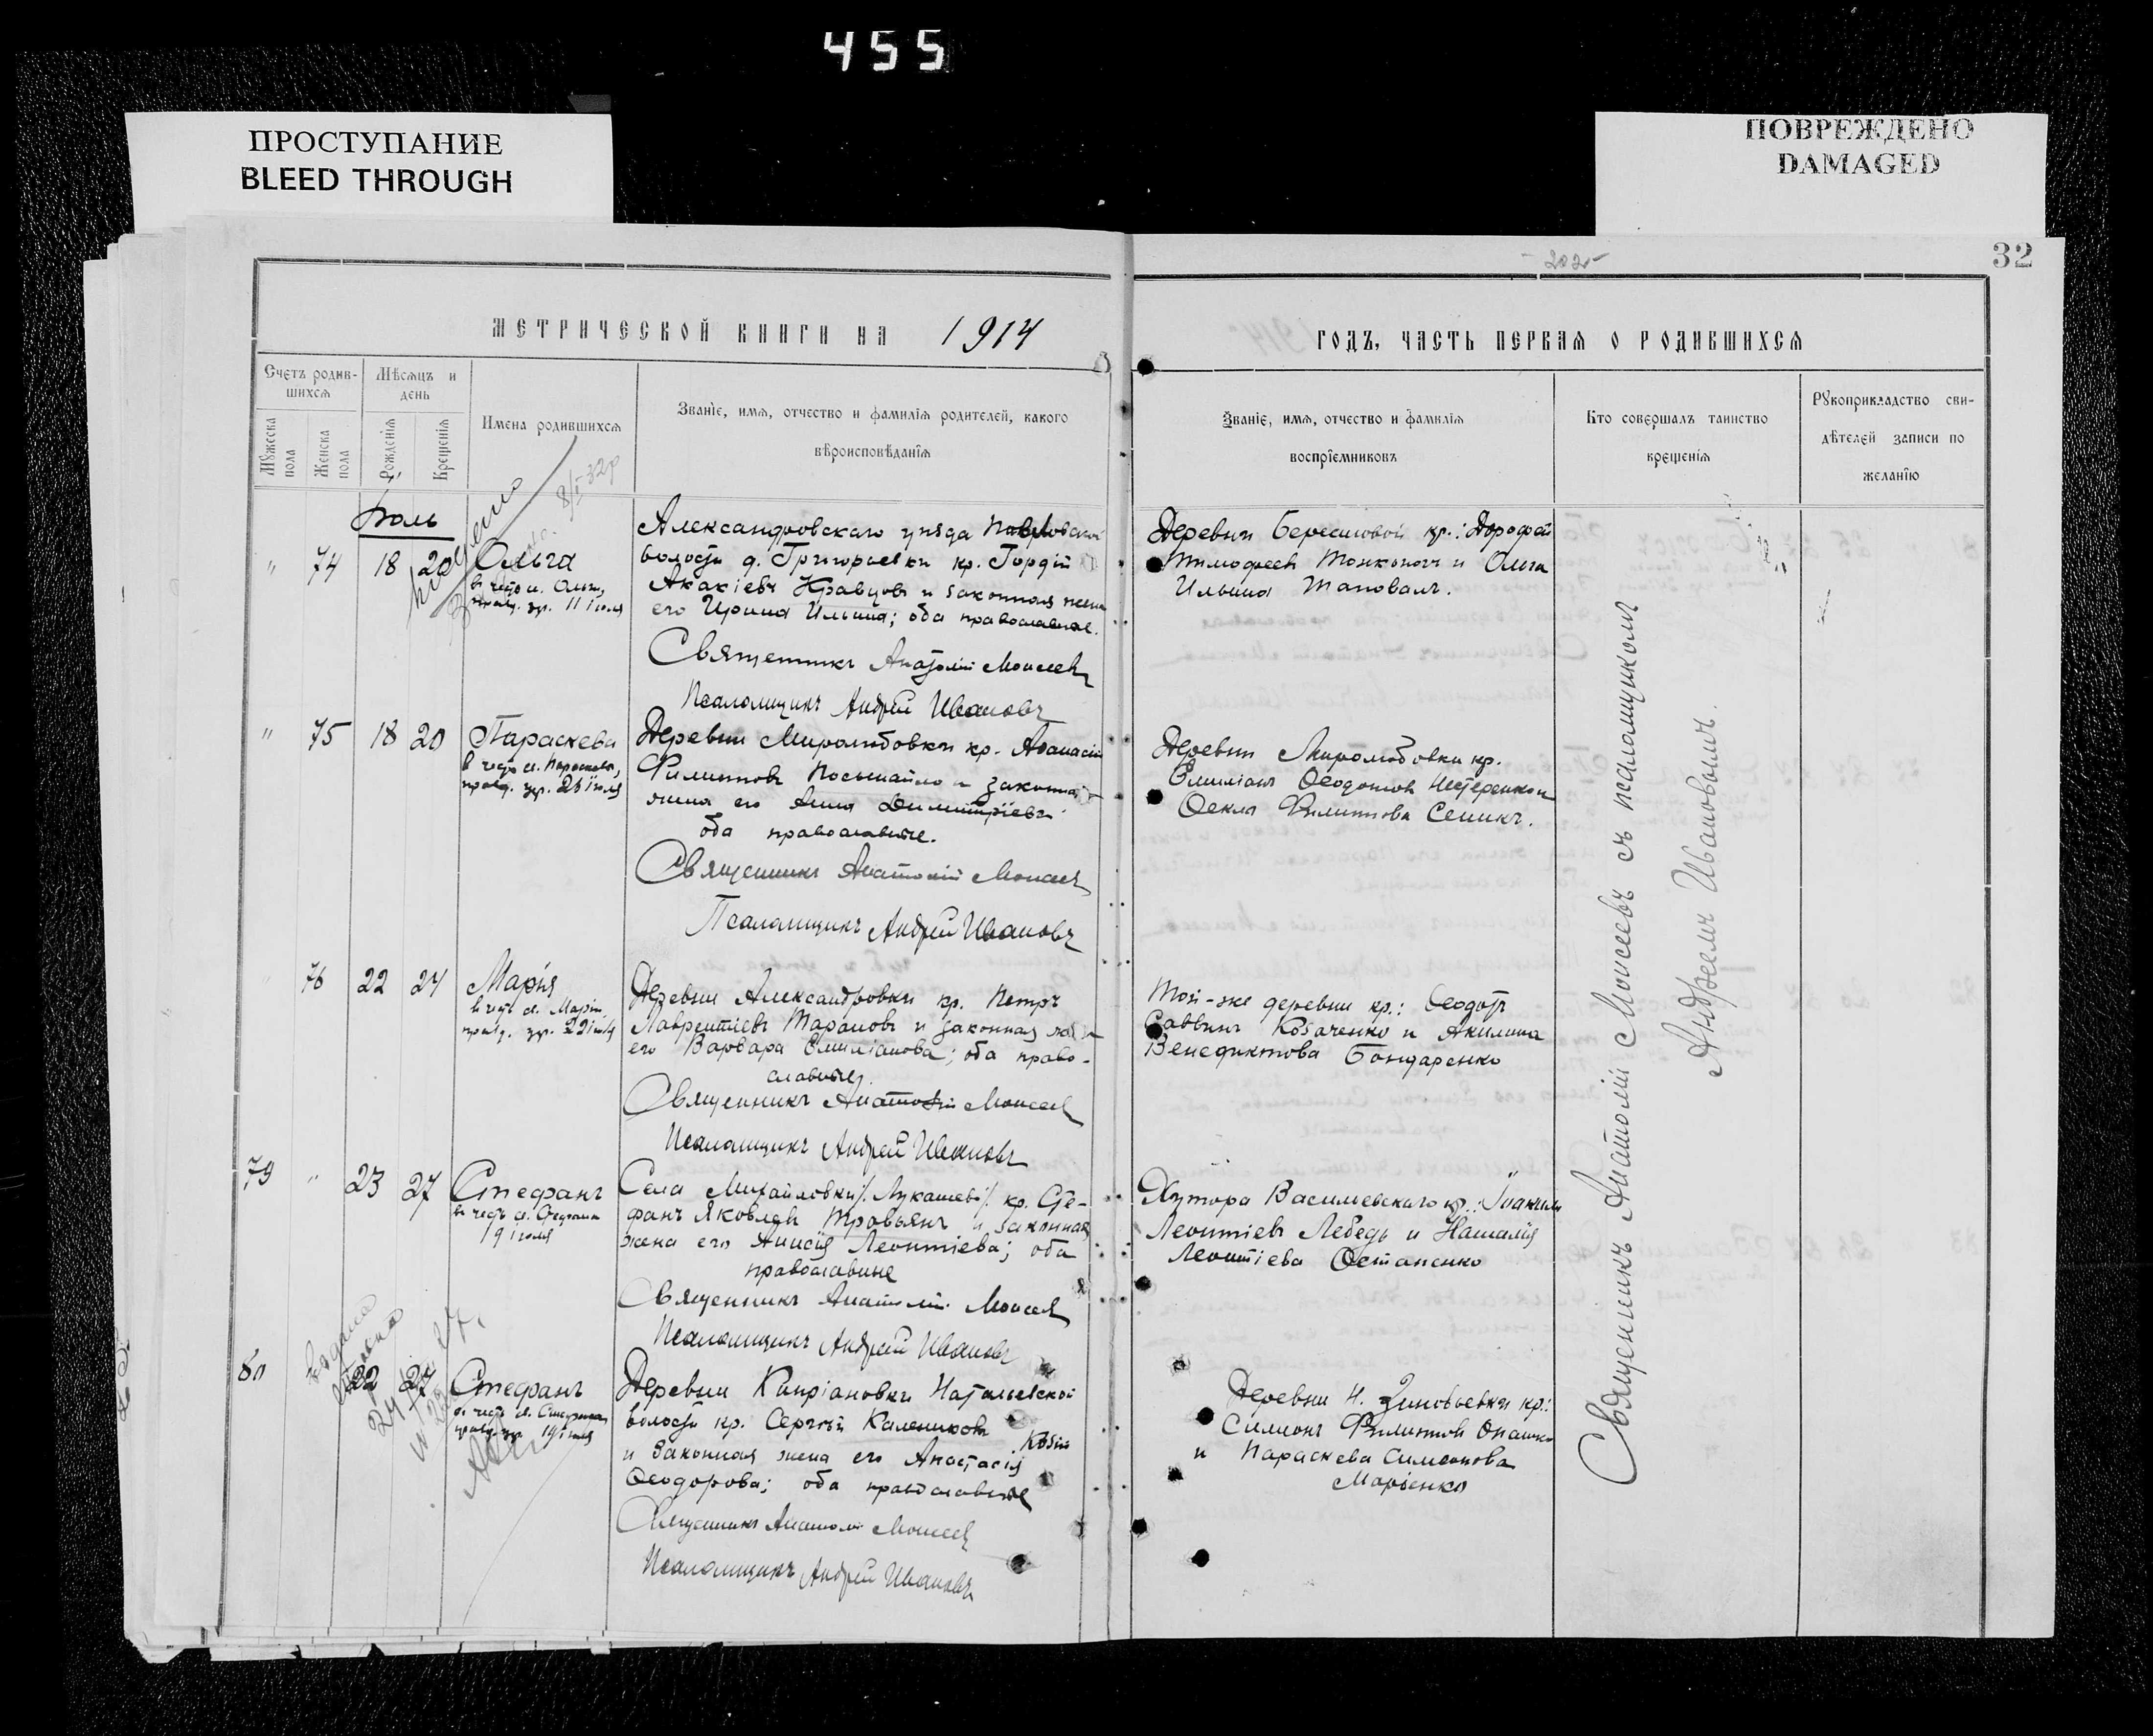 455
ПРОСТУПАНИЕ
BLEED THROUGH
ПОВРЕЖДЕНО
DAMAGED
-202-
32
МЕТРИЧЕСКОЙ КНИГИ НА 1914
ГОДЪ, ЧАСТЬ ПЕРВАЯ О РОДИВШИХСЯ
Счетъ родившихся
Мужеска пола
Женска пола
Мѣсяцъ и день
Рожденія
Крещенія
Имена родившихся
Званіе, имя, отчество и фамилія родителей, какого
вѣроисповѣданія
Званіе, имя, отчество и фамилія
воспріемниковъ
Кто совершалъ таинство
крещенія
Рукоприкладство сви-
дѣтелей записи по
желанію
Іюль
8/I-32р
" 74 18 20 Ольга
в честь св. Ольги,
празд. пр. 11 іюля
Александровскаго уѣзда Павловской
волости д. Григорьевки кр. Гордій
Акакіевъ Кравцовъ и законная жена
его Ирина Ильина; оба православные.
Священникъ Анатолій Моисеевъ
Псаломщикъ Андрей Ивановъ
Деревни Берестовой кр.: Дорофей
Тимофеевъ Тонконогъ и Ольга
Ильина Шаповалъ.
" 75 18 20 Параскева
в честь св. Параскевы,
празд. пр. 28 іюля
Деревни Миролюбовки кр. Аѳанасій
Филипповъ Посыпайло и законная
жена его Анна Димитріева
оба православные.
Священникъ Анатолій Моисеевъ
Псаломщикъ Андрей Ивановъ
Деревни Миролюбовки кр.
Емиліанъ Ѳеодотовъ Нестеренко и
Ѳекла Филиппова Сеникъ.
76 22 24 Марія
в честь св. Маріи,
празд. пр. 22 іюля
Деревни Александровки кр. Петръ
Лаврентіевъ Тарановъ и законная жена
его Варвара Емиліанова; оба право-
славные.
Священникъ Анатолій Моисеевъ
Псаломщикъ Андрей Ивановъ
Той-же деревни кр.: Ѳеодотъ
Саввинъ Козаченко и Акилина
Венедиктова Бондаренко
79 " 23 27 Стефанъ
в честь св. Стефана
19 іюля
Села Михайловки /Лукашево/ кр. Сте-
фанъ Яковлевъ Тровьянъ и законная
жена его Анисія Леонтіева; оба
православные
Священникъ Анатолій Моисеевъ
Псаломщикъ Андрей Ивановъ
Хутора Василіевскаго кр.: Іоакимъ
Леонтіевъ Лебедь и Наталія
Леонтіева Остапенко
80 22 27 Стефанъ
в честь св. Стефана,
празд. пр. 19 іюля
Деревни Капріановки Натальевской
волости кр. Сергѣй Калениковъ
Козій
и законная жена его Анастасія
Ѳеодорова; оба православные
Священникъ Анатолій Моисеевъ
Псаломщикъ Андрей Ивановъ
Деревни Н. Зиновьевки кр.:
Симеонъ Филипповъ Опашко
и Параскева Симеонова
Марченко
Священникъ Анатолій Моисеевъ съ псаломщикомъ
Андреемъ Ивановымъ.